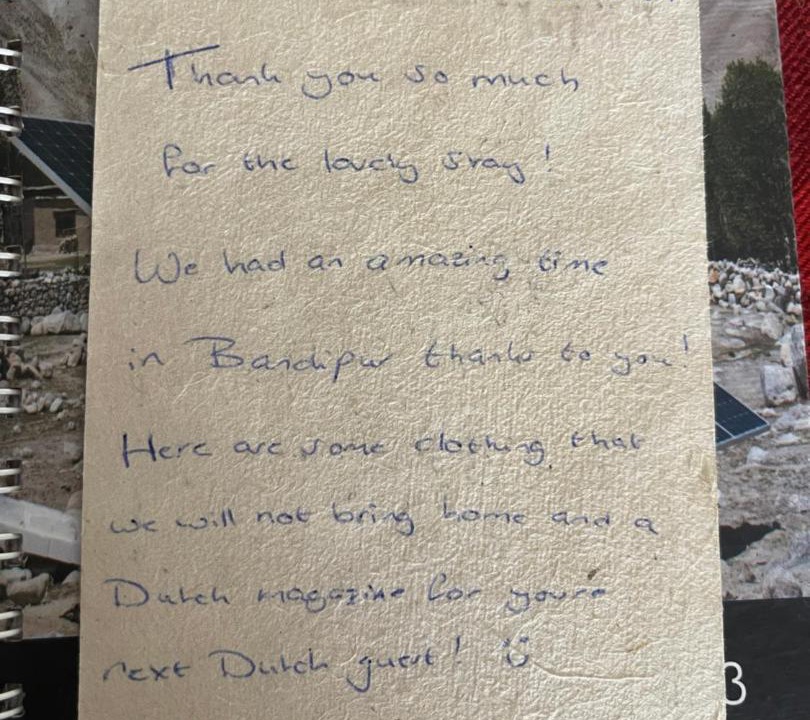 Thank you so much
for the lovely stay!
We had an amazing time
in Bandipur thanks to you!
Here are some clothing that
we will not bring home and a
Dutch magazine for youre
next Dutch guest! ☺
3